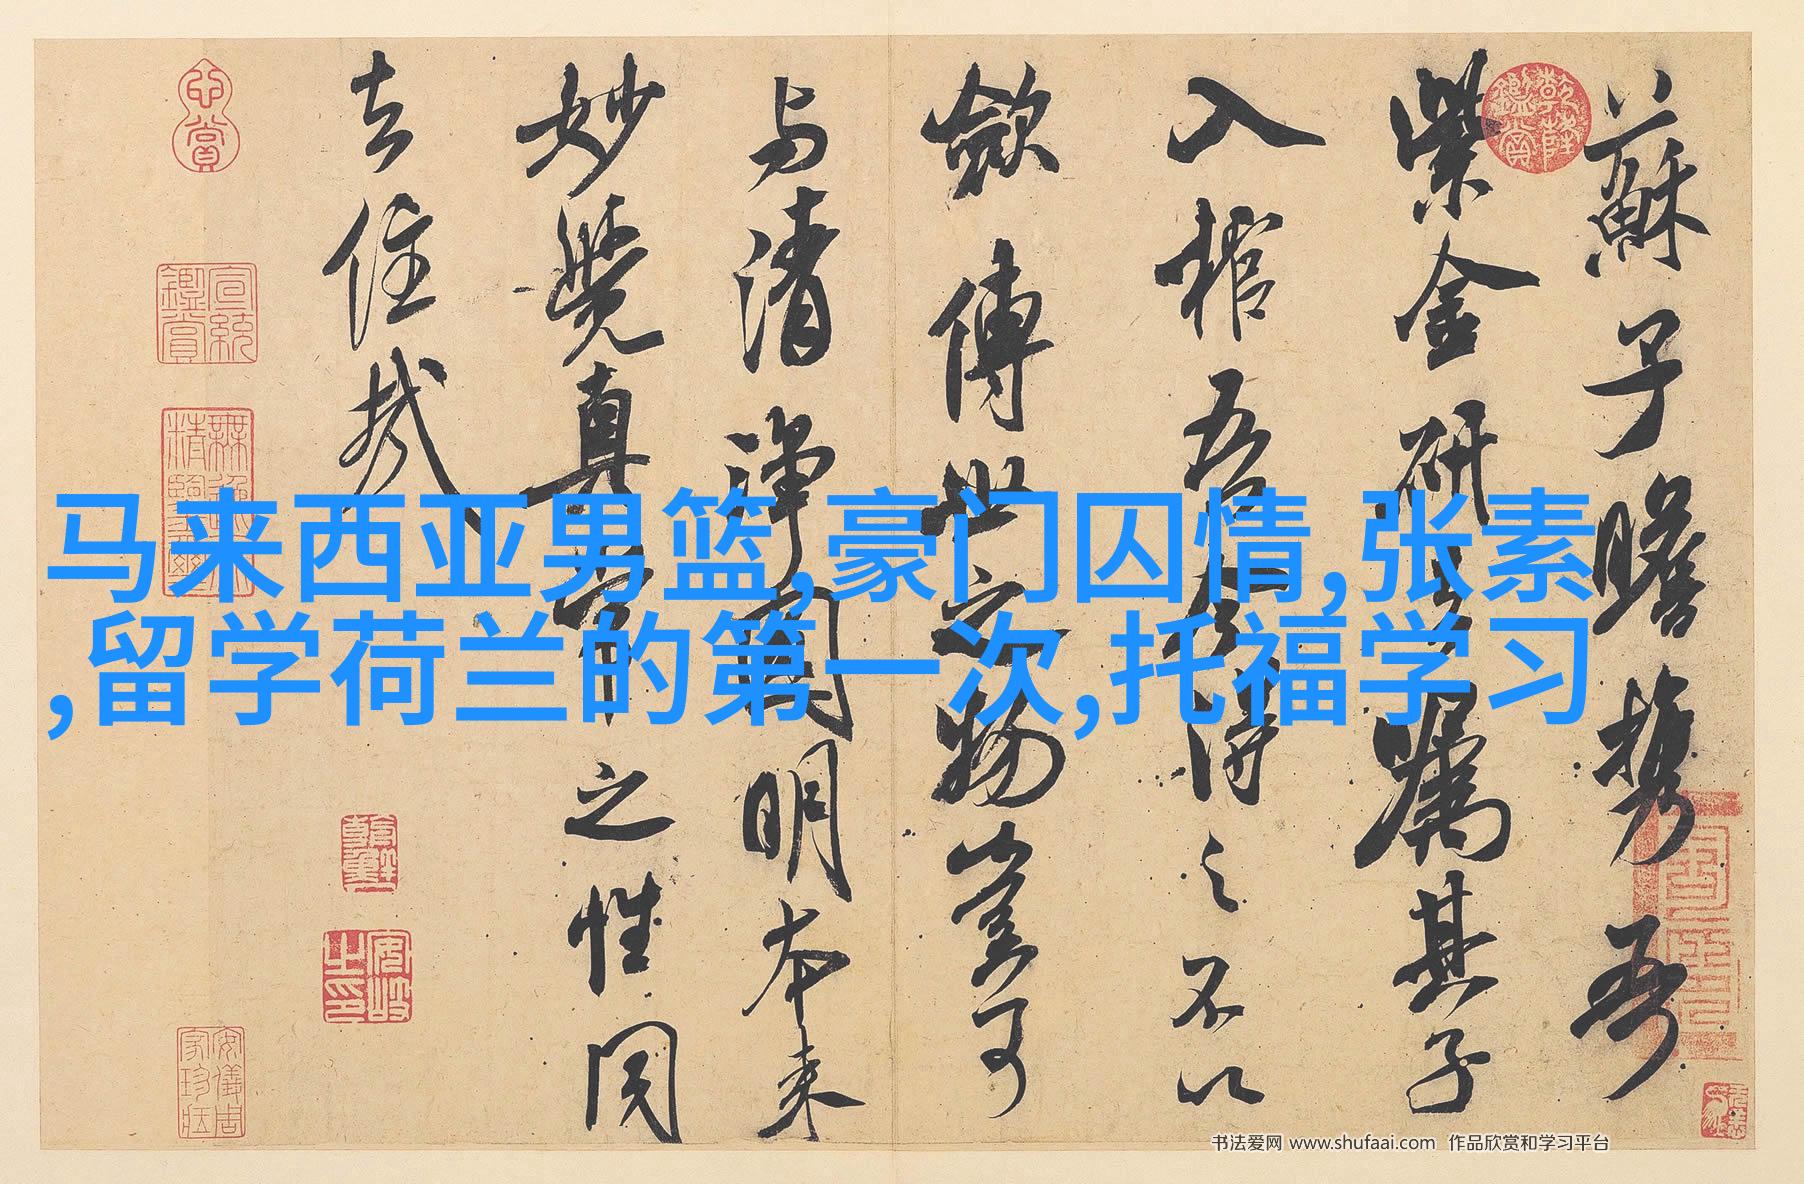 蘇子瞻携吾
紫金研去嘱其子
入棺吾今得之不以
歛傳世之物豈可
与清净圓明本来
妙覺真常之性同
去住哉
马来西亚男篮,豪门囚情,张素
,留学荷兰的第一次,托福学习
书法爱网 www.shufaai.com 作品欣赏和学习平台